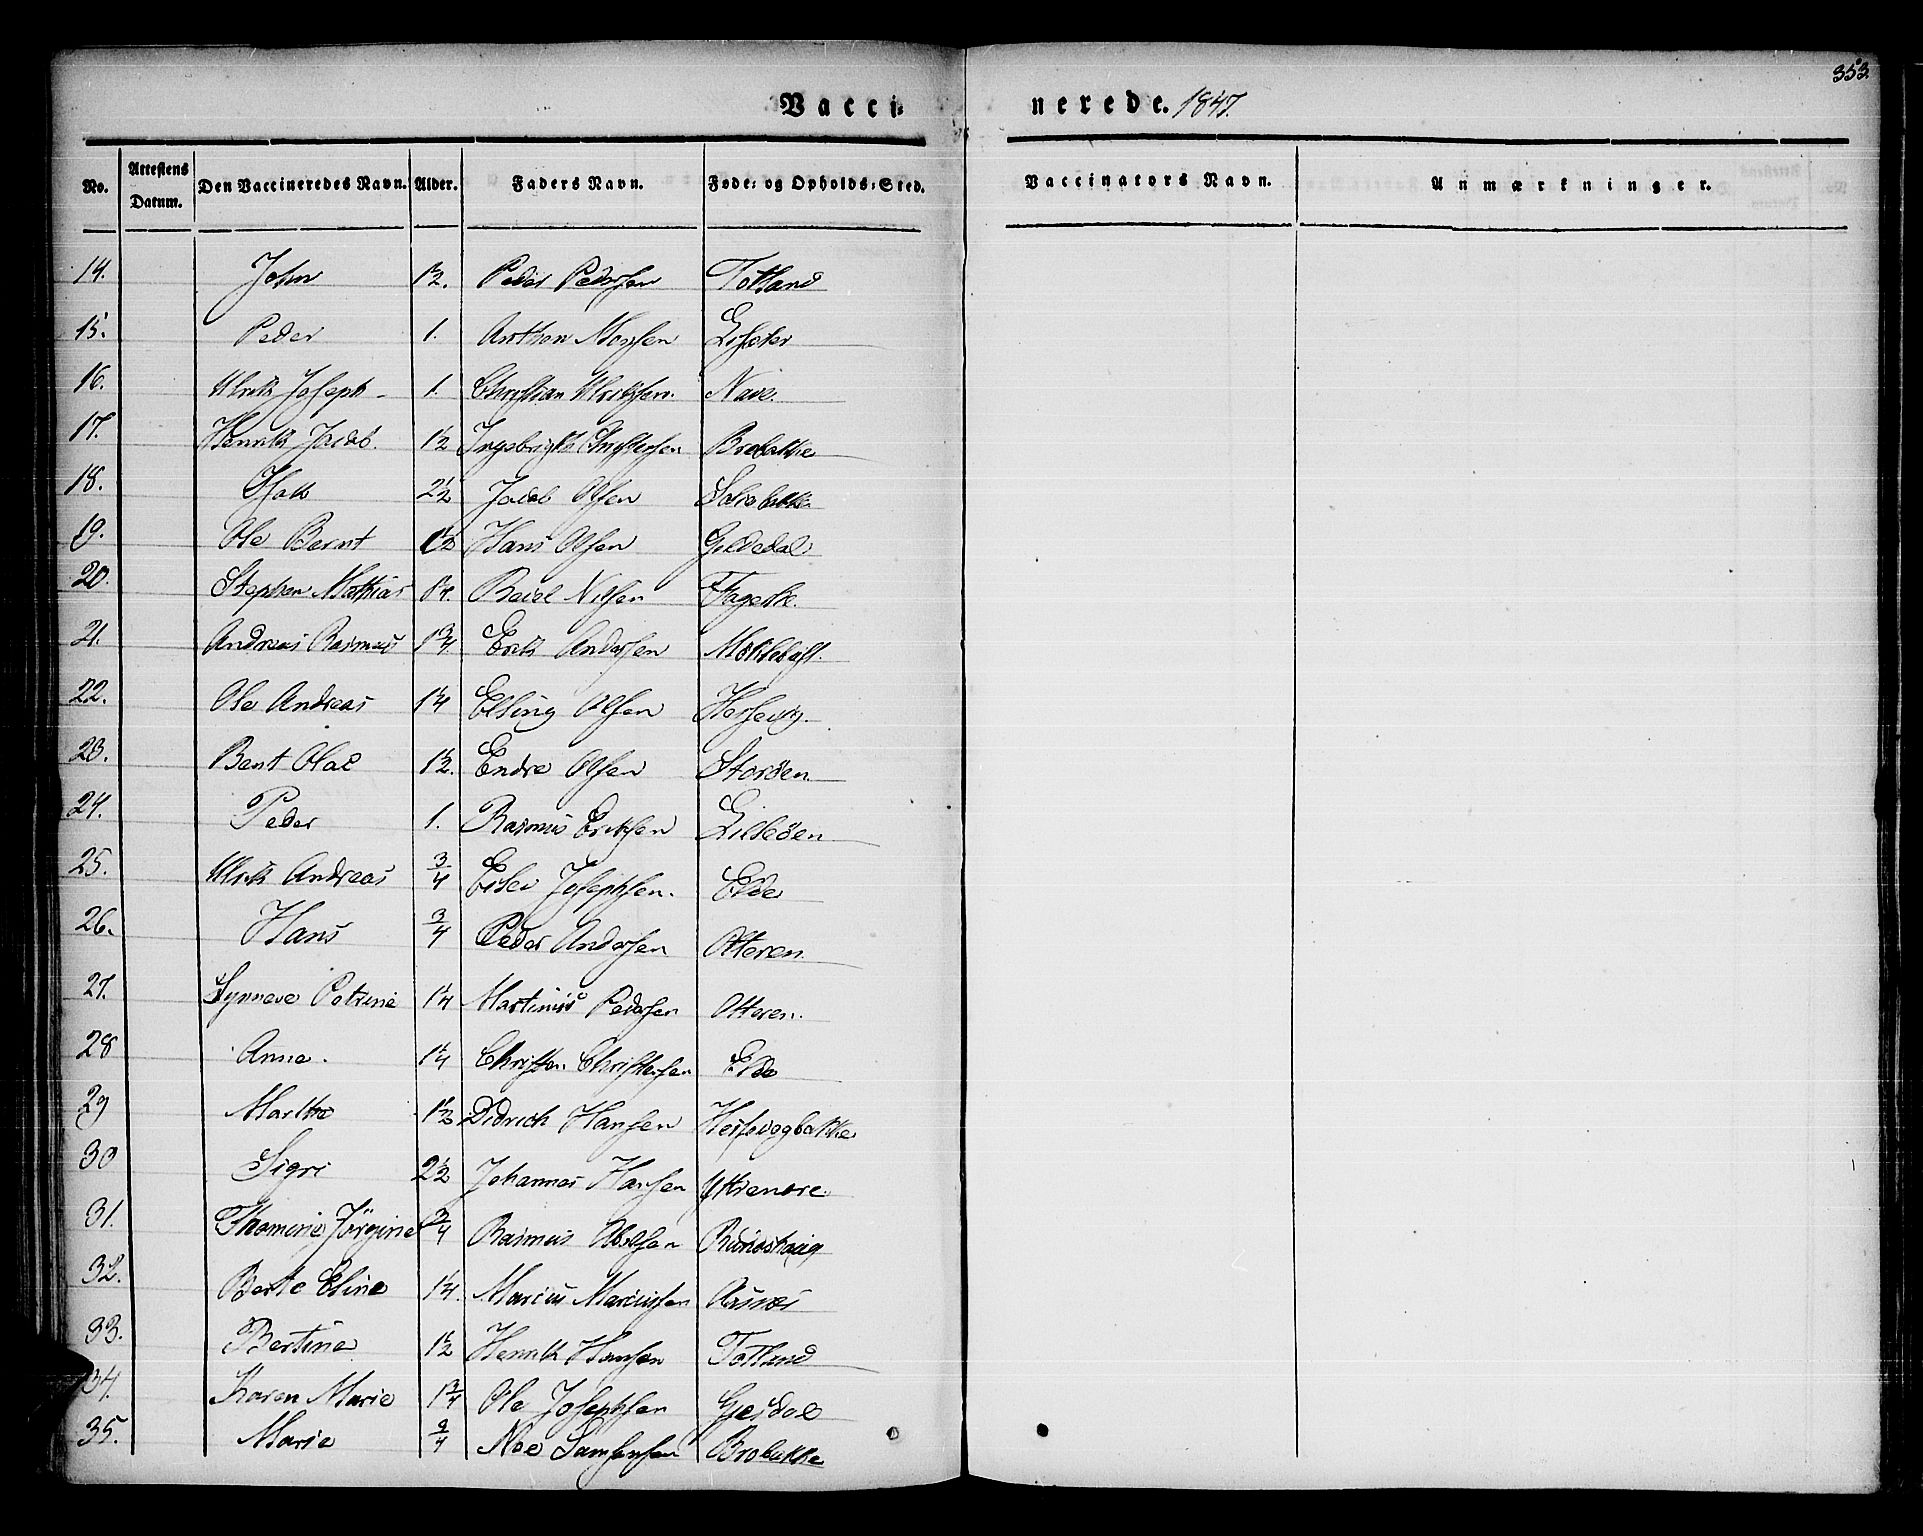 353.
Vacci= nerede. 1847.
No. Attestens Datum. Den Vaccineredes Navn. Alder. Faders Navn. Føde- og Opholds-Sted. Vaccinators Navn. Anmærkninger.
14. John 1½. Peder Pedersen Totland
15. Peder 1. Anthon Monsen
16. Ulrik Joseph 1. Christian Ulriksen. Nave.
17. Henrik Jacob. 1½ Ingebrigt Christensen Brobakke
18. 2½ Jacob Olsen
19. Ole Bernt 1½ Hans Olsen Geldedal
20. Stephen Mathias Nilsen
21. Andreas Rasmus 1¾ Erik Andersen
22. Ole Andreas 1¼ Elling Olsen
23. Bent Olai 1½. Endre Olsen Storøen
24. Peder 1. Rasmus Eriksen Lilleøen
25. Ulrik Andreas ¾ Josephsen. Elde
26. Hans ¾ Peder Andersen Otteren
27. Synneve Petrine 1¼ Martinus Pedersen Otteren.
28 Anne. 1¼ Christen Christensen Elde
29 Marthe 1½ Didrich Hansen
30 Sigri 2½ Johannes Hansen
31. Thomine Jørgine ¾ Rasmus Abelsen
32. Berte Eline 1¼. Marius Mariussen Aasnes
33. Bertine 1½ Henrik Hansen Totland
34. Karen Marie 1¾ Ole Josephsen Gjeldal
35. Marie ¾ Noe Samsonsen Brobakke